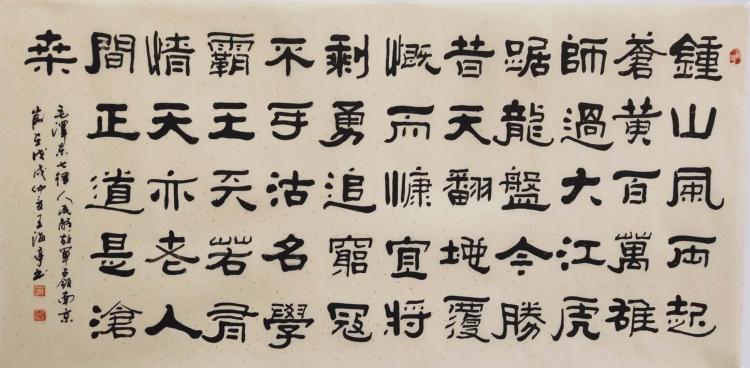 鍾山風雨起
蒼黃百萬雄
師過大江虎
踞龍盤今勝
昔天翻地覆
慨而慷宜將
剩勇追窮寇
不可沽名學
霸王天若有
情天亦老人
間正道是滄
桑
毛澤東七律人民解放軍占領南京
歲在戊戌仲夏王海